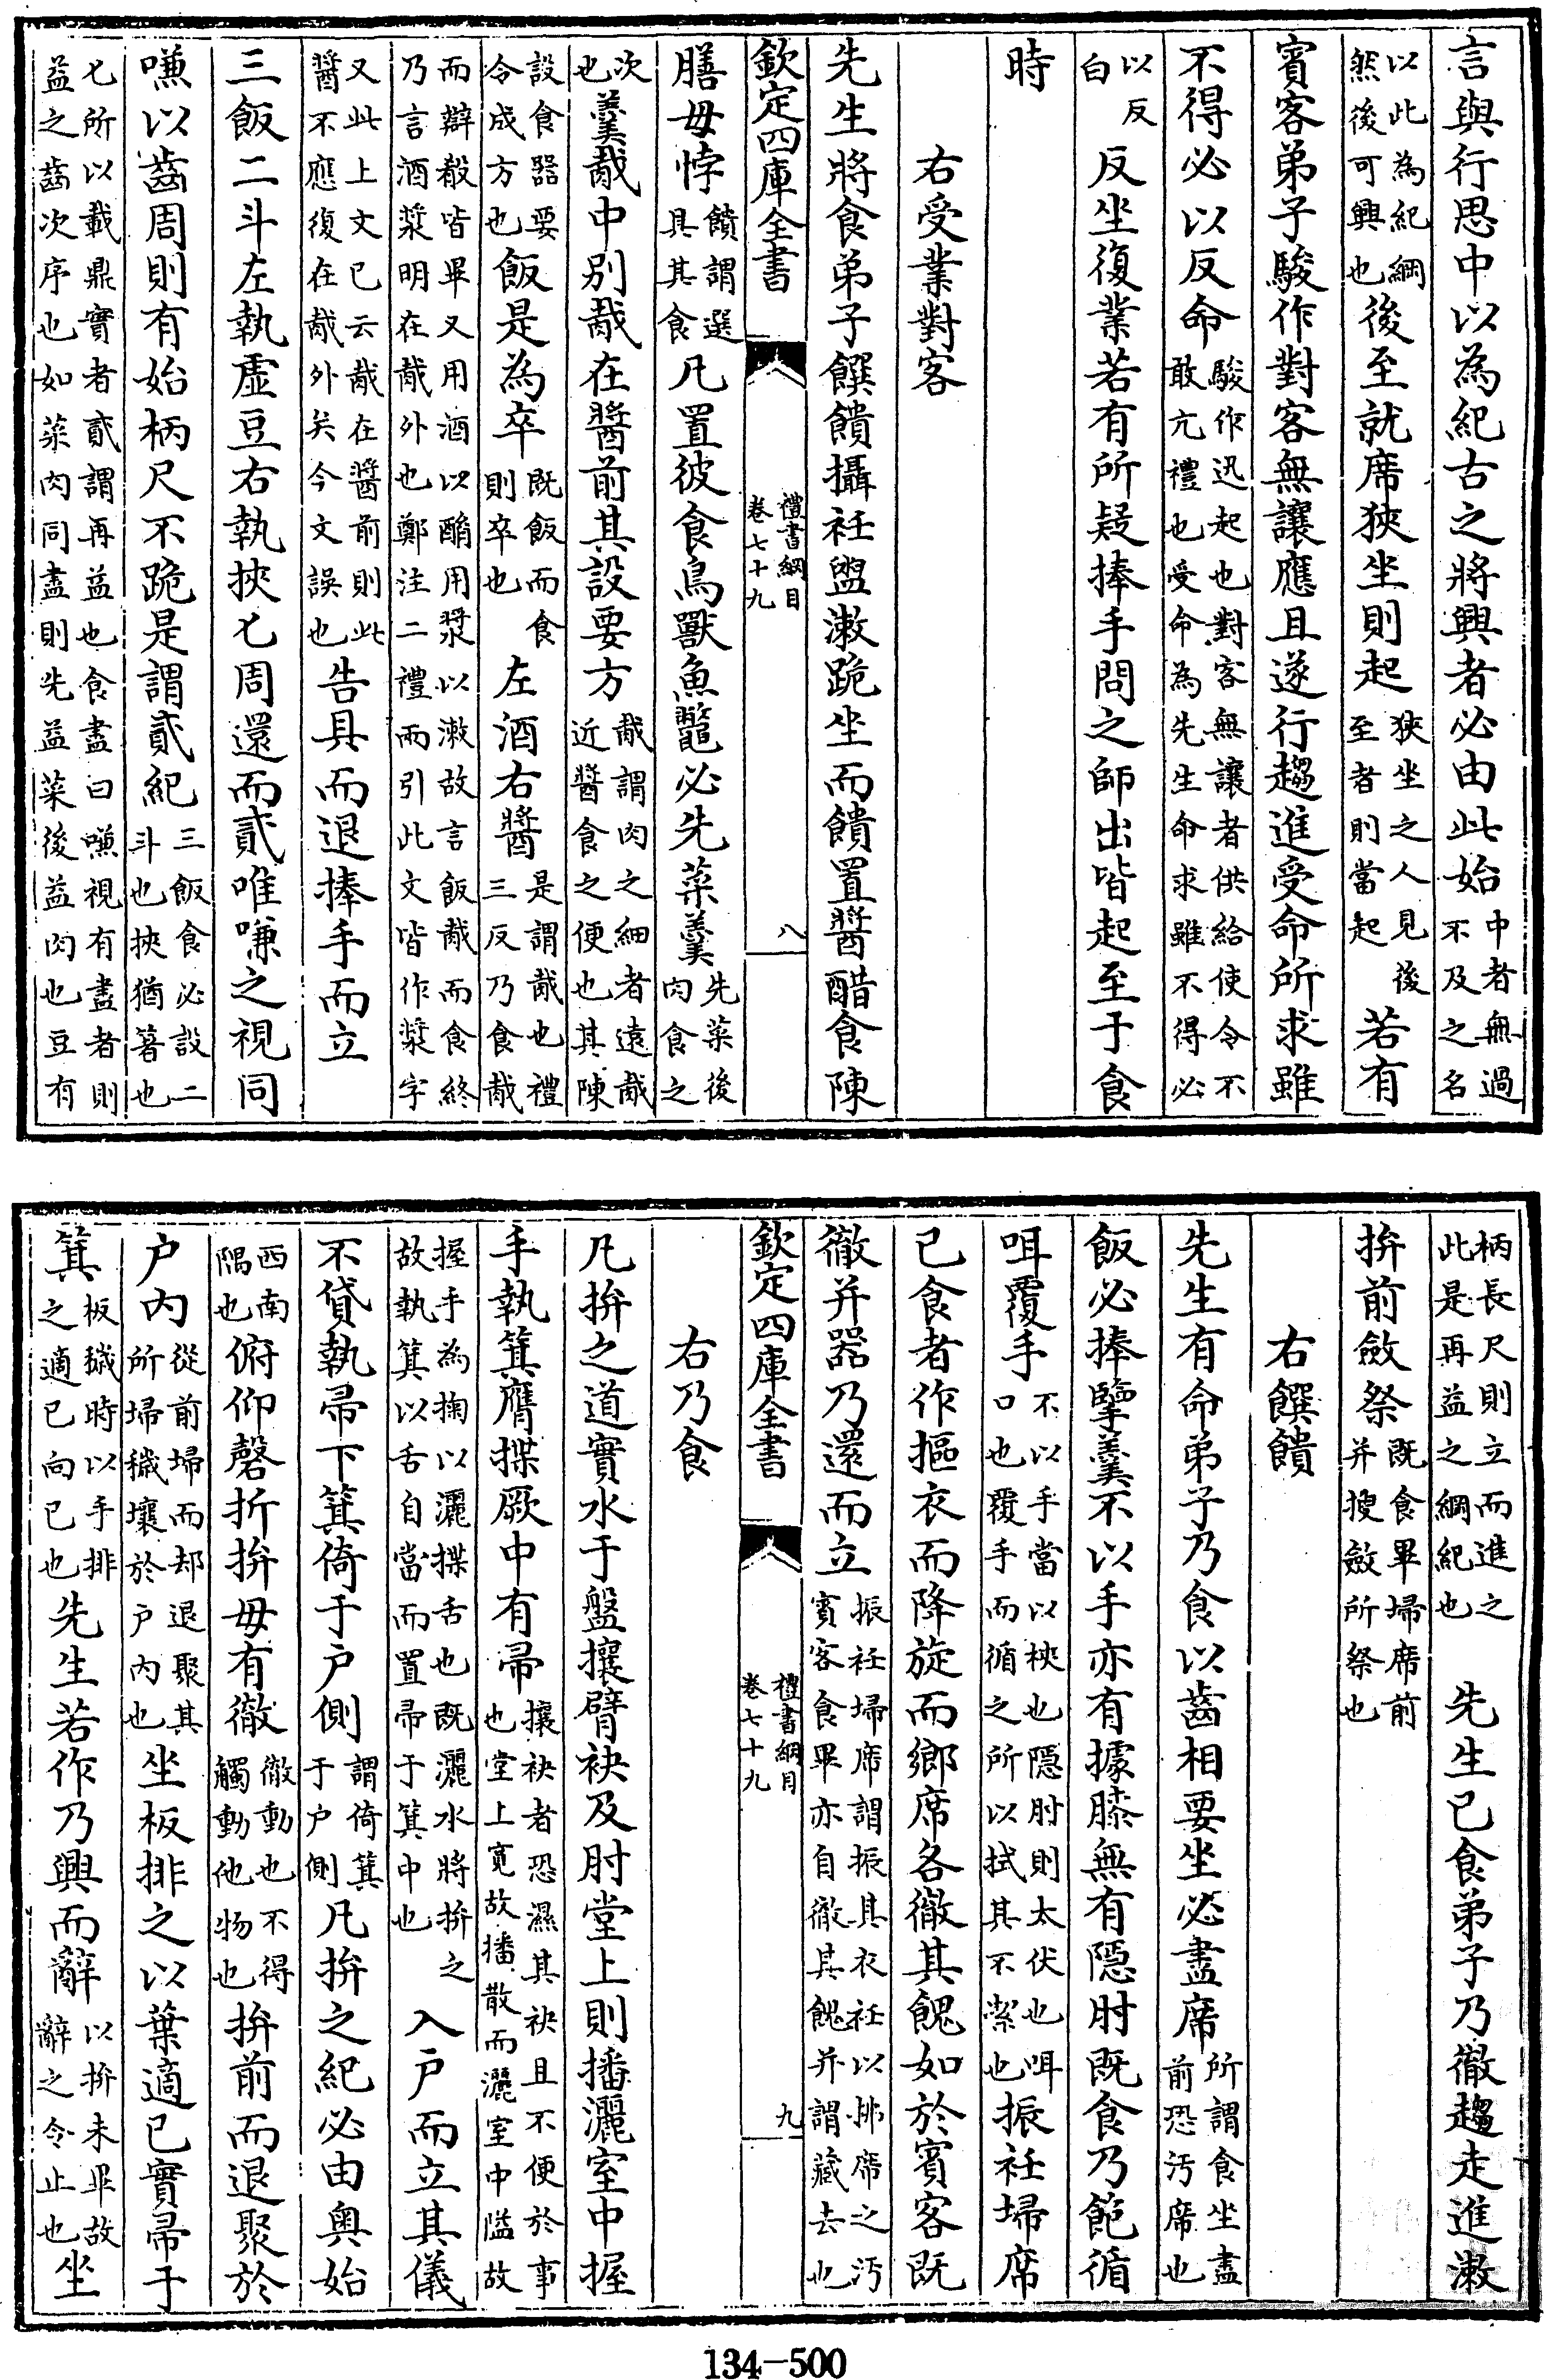 言與行思中以為紀古之將興者必由此始中者無過不及之名
以此為紀綱然後可興也後至就席狹坐則起狹坐之人見後至者則當起若有
賓客弟子駿作對客無讓應且遂行趨進受命所求雖
不得必以反命駿作迅起也對客無讓者供給使令不敢亢禮也受命為先生命求雖不得必
以反白反坐復業若有所疑捧手問之師出皆起至于食
時
右受業對客
先生將食弟子饌饋攝衽盥漱跪坐而饋置醬醋食陳
欽定四庫全書
禮書綱目
卷七十九
八
膳毋悖饋謂選具其食凡置彼食鳥獸魚鼈必先菜羹先菜後肉食之
次也羹胾中别胾在醬前其設要方胾謂肉之細者遠胾近醬食之便也其陳
設食器要令成方也飯是為卒既飯而食則卒也左酒右醬是謂胾也禮三反乃食胾
而辯殽皆畢又用酒以酳用漿以漱故言飯胾而食終乃言酒漿明在胾外也鄭注二禮而引此文皆作漿字
又此上文已云胾在醬前則此醬不應復在胾外矣今文誤也告具而退捧手而立
三飯二斗左執虛豆右執挾匕周還而貳唯嗛之視同
嗛以齒周則有始柄尺不跪是謂貳紀三飯食必設二斗也挾猶箸也
匕所以載鼎實者貳謂再益也食盡曰嗛視有盡者則益之齒次序也如菜肉同盡則先益菜後益肉也豆有
柄長尺則立而進之此是再益之綱紀也先生已食弟子乃徹趨走進漱
拚前斂祭既食畢埽席前并摉斂所祭也
右饌饋
先生有命弟子乃食以齒相要坐必盡席所謂食坐盡前恐汚席也
飯必捧擥羹不以手亦有據膝無有隱肘既食乃飽循
咡覆手不以手當以柍也隱肘則太伏也咡口也覆手而循之所以拭其不潔也振衽埽席
已食者作摳衣而降旋而鄉席各徹其餽如於賓客既
徹并器乃還而立振衽埽席謂振其衣衽以拂席之汚賓客食畢亦自徹其餽并謂藏去也
欽定四庫全書
禮書綱目
卷七十九
九
右乃食
凡拚之道實水于盤攘臂袂及肘堂上則播灑室中握
手執箕膺揲厥中有帚攘袂者恐濕其袂且不便於事也堂上寛故播散而灑室中隘故
握手為掬以灑揲舌也既灑水將拚之故執箕以舌自當而置帚于箕中也入户而立其儀
不貸執帚下箕倚于户側謂倚箕于户側凡拚之紀必由奥始
西南隅也俯仰磬折拚毋有徹徹動也不得觸動他物也拚前而退聚於
户内從前埽而却退聚其所埽穢壤於户内也坐板排之以葉適已實帚于
箕板穢時以手排之適已向已也先生若作乃興而辭以拚未畢故辭之令止也坐
134-500